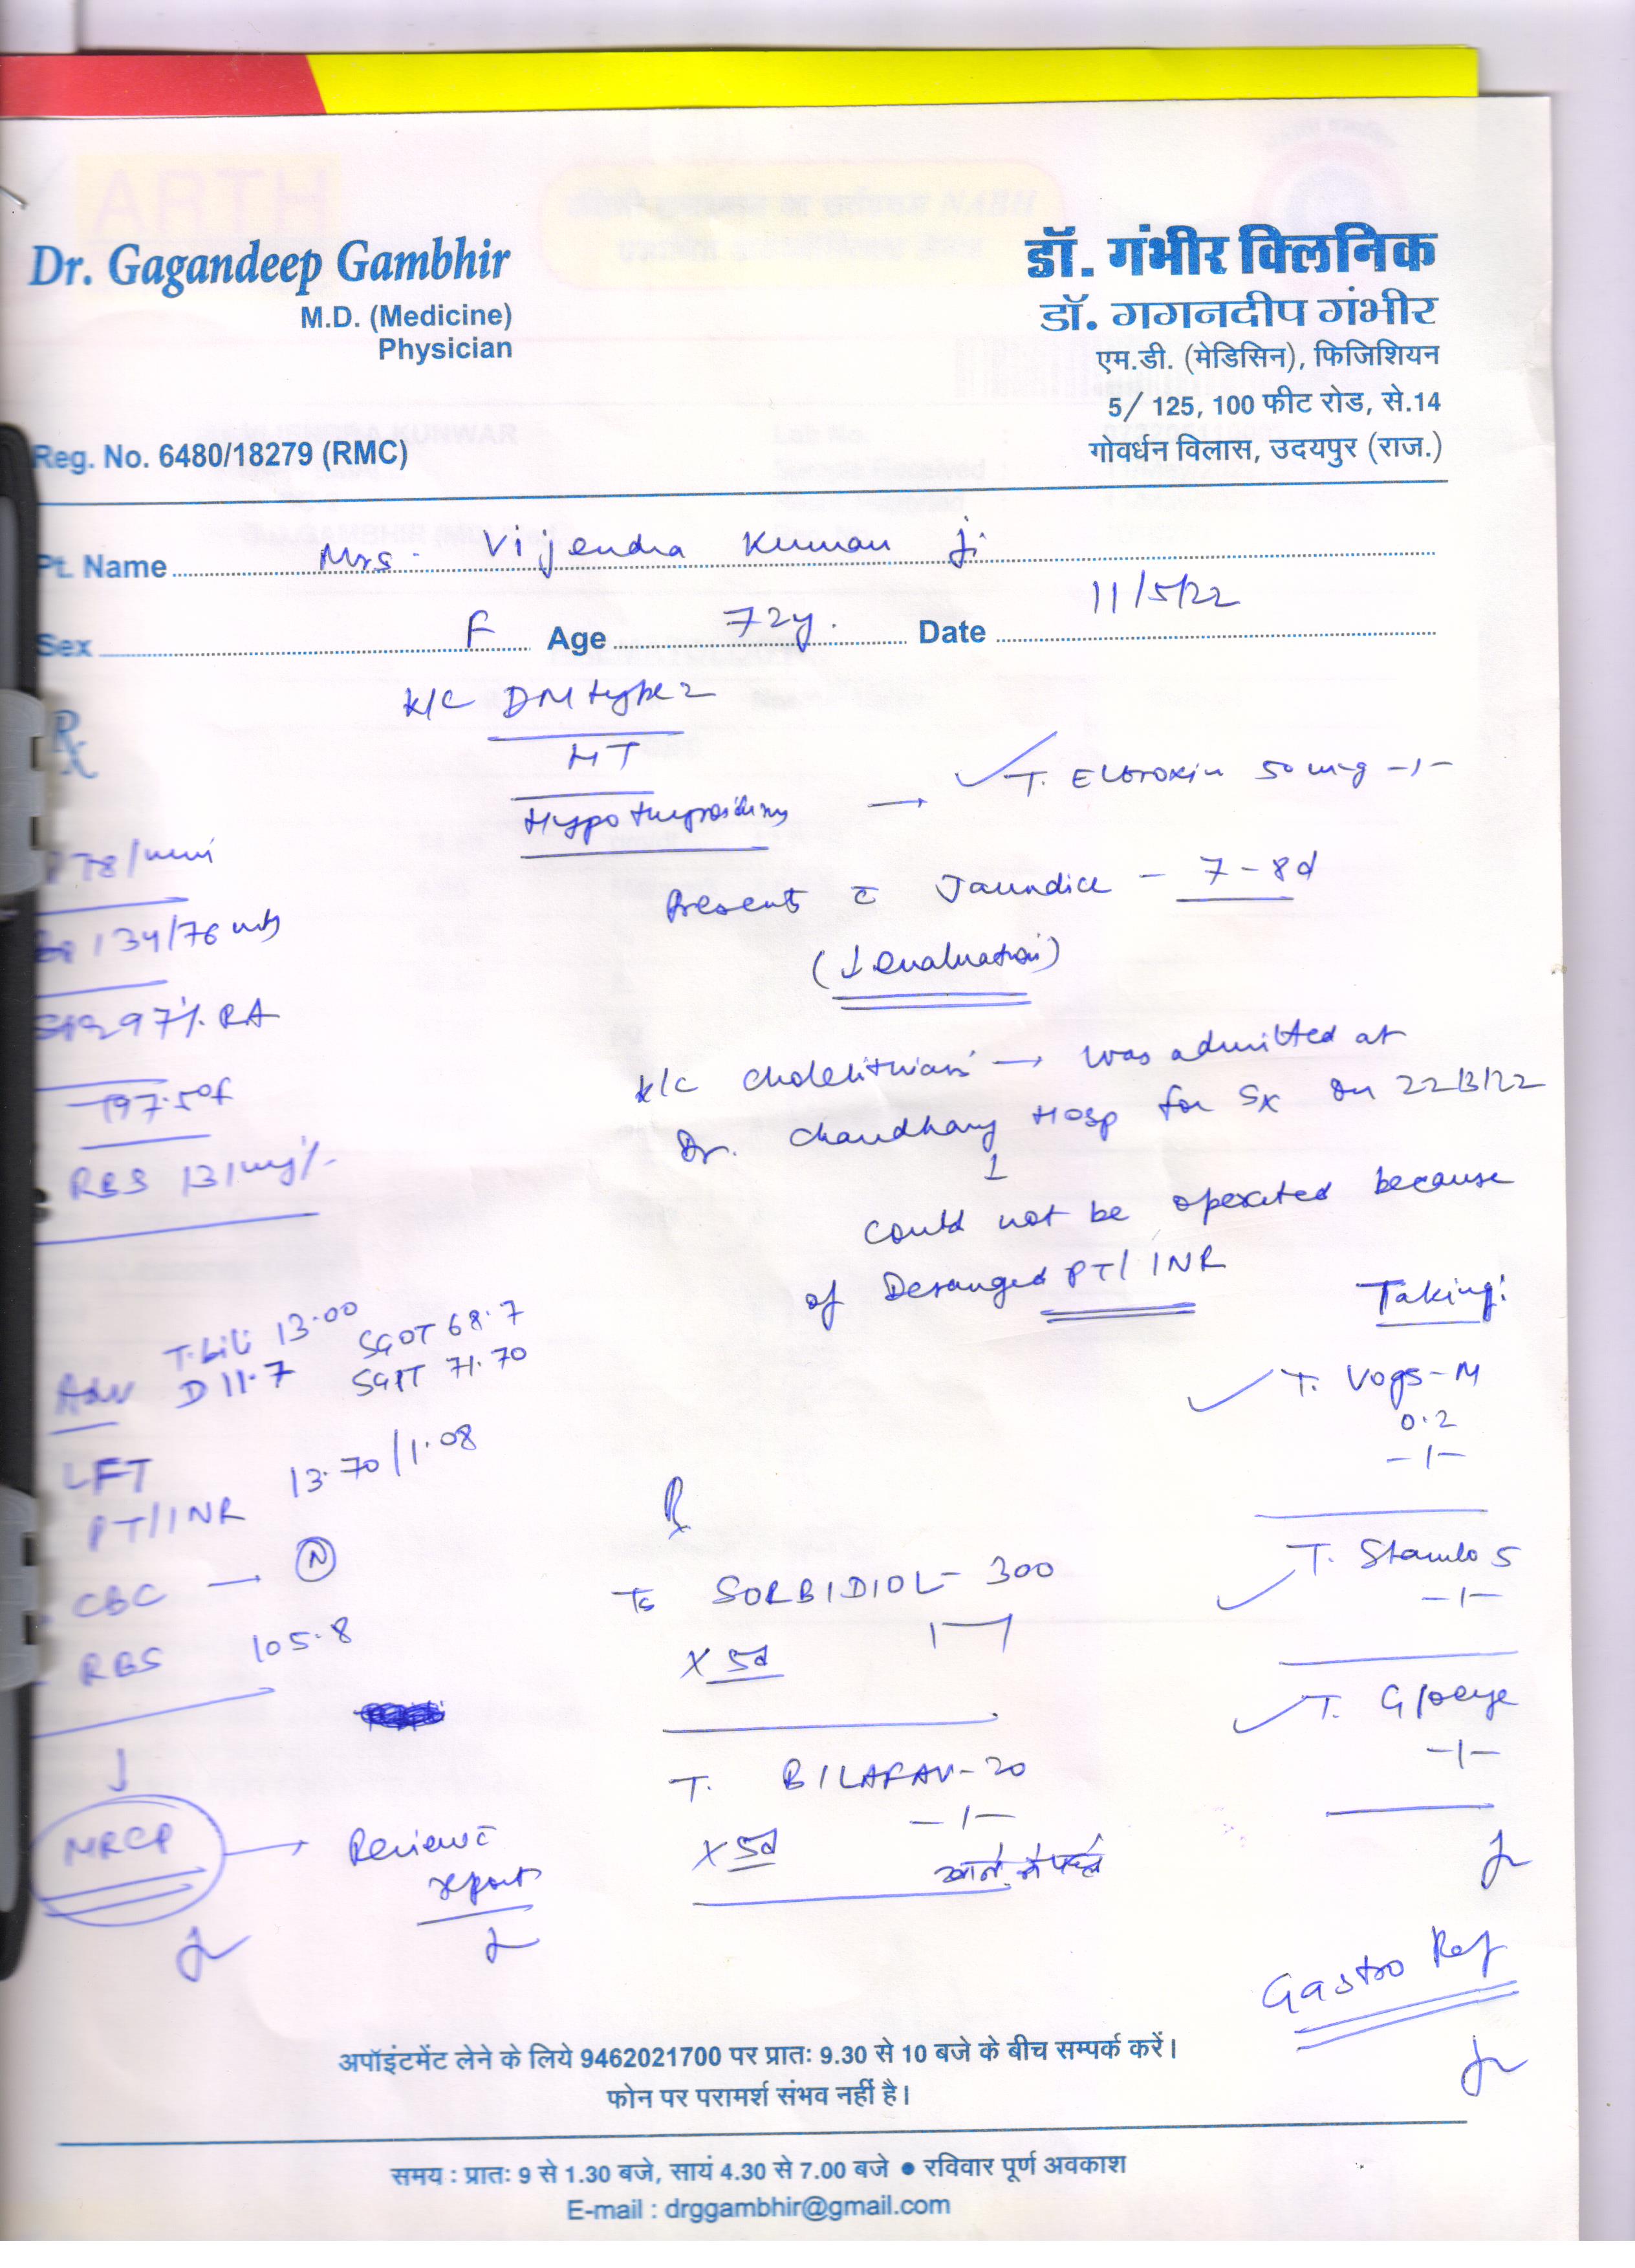 Dr. Gagandeep Gambhir
M.D. (Medicine)
Physician
Reg. No. 6480/18279 (RMC)
डॉ. गंभीर क्लिनिक
डॉ. गगनदीप गंभीर
एम.डी. (मेडिसिन), फिजिशियन
5/ 125, 100 फीट रोड, से.14
गोवर्धन विलास, उदयपुर (राज.)
Pt. Name Mrs. Vijendra Kunwar Ji
Sex F Age 72y. Date 11/5/22
K/C DM type 2
HT
Hypothyroidism → T. Eltroxin 50 mcg -1-
78/min
134/76 mmHg
SPO2 97% RA
T 97.5°F
RBS 131 mg%
Present c̄ Jaundice - 7-8d
(↓ evaluation)
K/C Cholelithiasis → was admitted at
Dr. Chaudhary Hosp for Sx on 22/3/22
↓
could not be operated because
of Deranged PT/INR
Taking:
T. Vogs-M
0.2
-1-
T. Stamlo 5
-1-
T.
-1-
Adv
T.bili 13.00 SGOT 68.7
D 11.7 SGPT 71.70
LFT
PT/INR 13.70/1.08
CBC → N
RBS 105.8
↓
MRCP → Review c̄
report
Rx
SORBIDIOL-300
x 5d
T. BILAFAV-20
-1-
x 5d खाने से पहले
Gastro Ref
अपॉइंटमेंट लेने के लिये 9462021700 पर प्रातः 9.30 से 10 बजे के बीच सम्पर्क करें।
फोन पर परामर्श संभव नहीं है।
समय : प्रातः 9 से 1.30 बजे, सायं 4.30 से 7.00 बजे ● रविवार पूर्ण अवकाश
E-mail : drggambhir@gmail.com